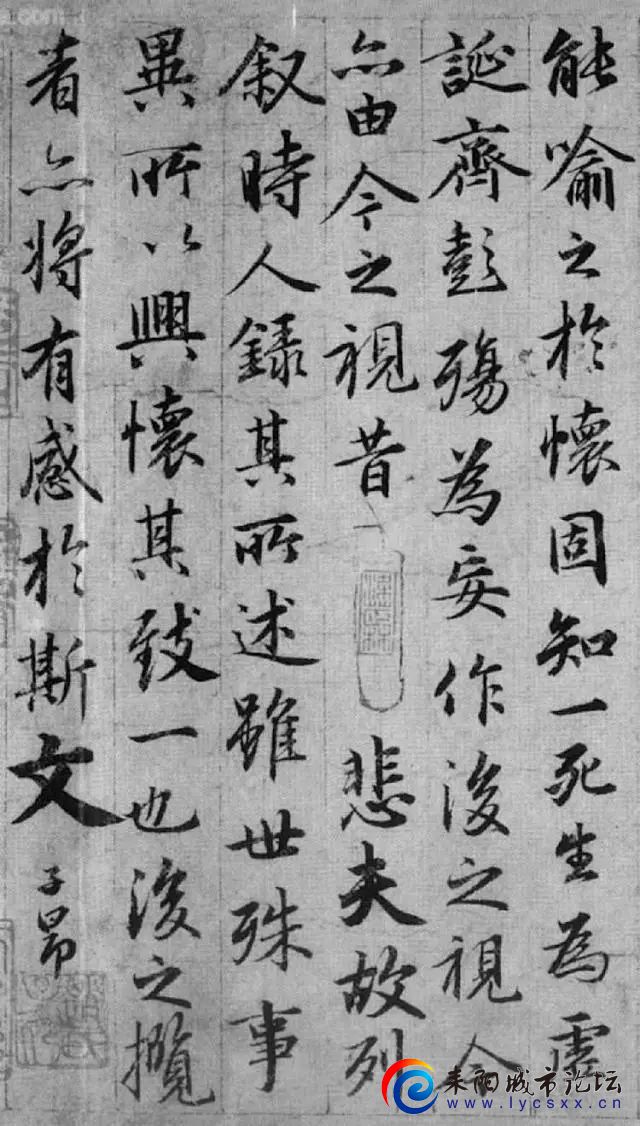 能喻之於懷固知一死生為虛
誕齊彭殤為妄作後之視今
亦由今之視昔悲夫故列
叙時人錄其所述雖世殊事
異所以興懷其致一也後之攬
者亦將有感於斯文
子昂
耒阳城市论坛
www.lycsxx.cn
.com